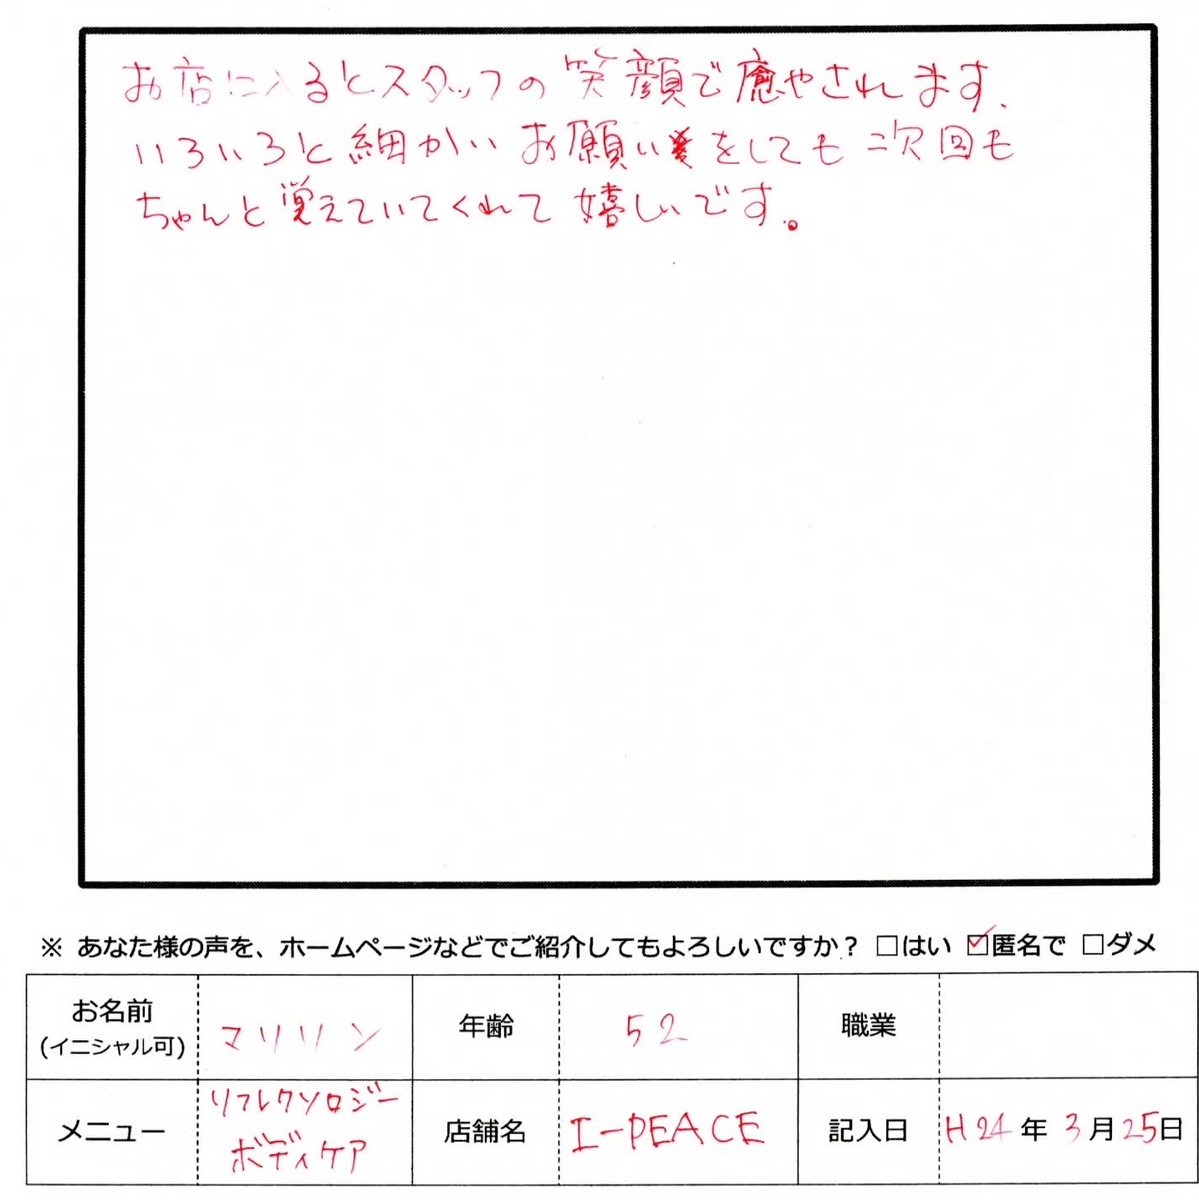 お店に入るとスタッフの笑顔で癒やされます、
いろいろと細かいお願いをしても次回も
ちゃんと覚えていてくれて嬉しいです。
※ あなた様の声を、ホームページなどでご紹介してもよろしいですか？ □はい ☑匿名で □ダメ
お名前
(イニシャル可)
マリリン
年齢
52
職業
メニュー
リフレクソロジー
ボディケア
店舗名
I-PEACE
記入日
H24年 3月25日